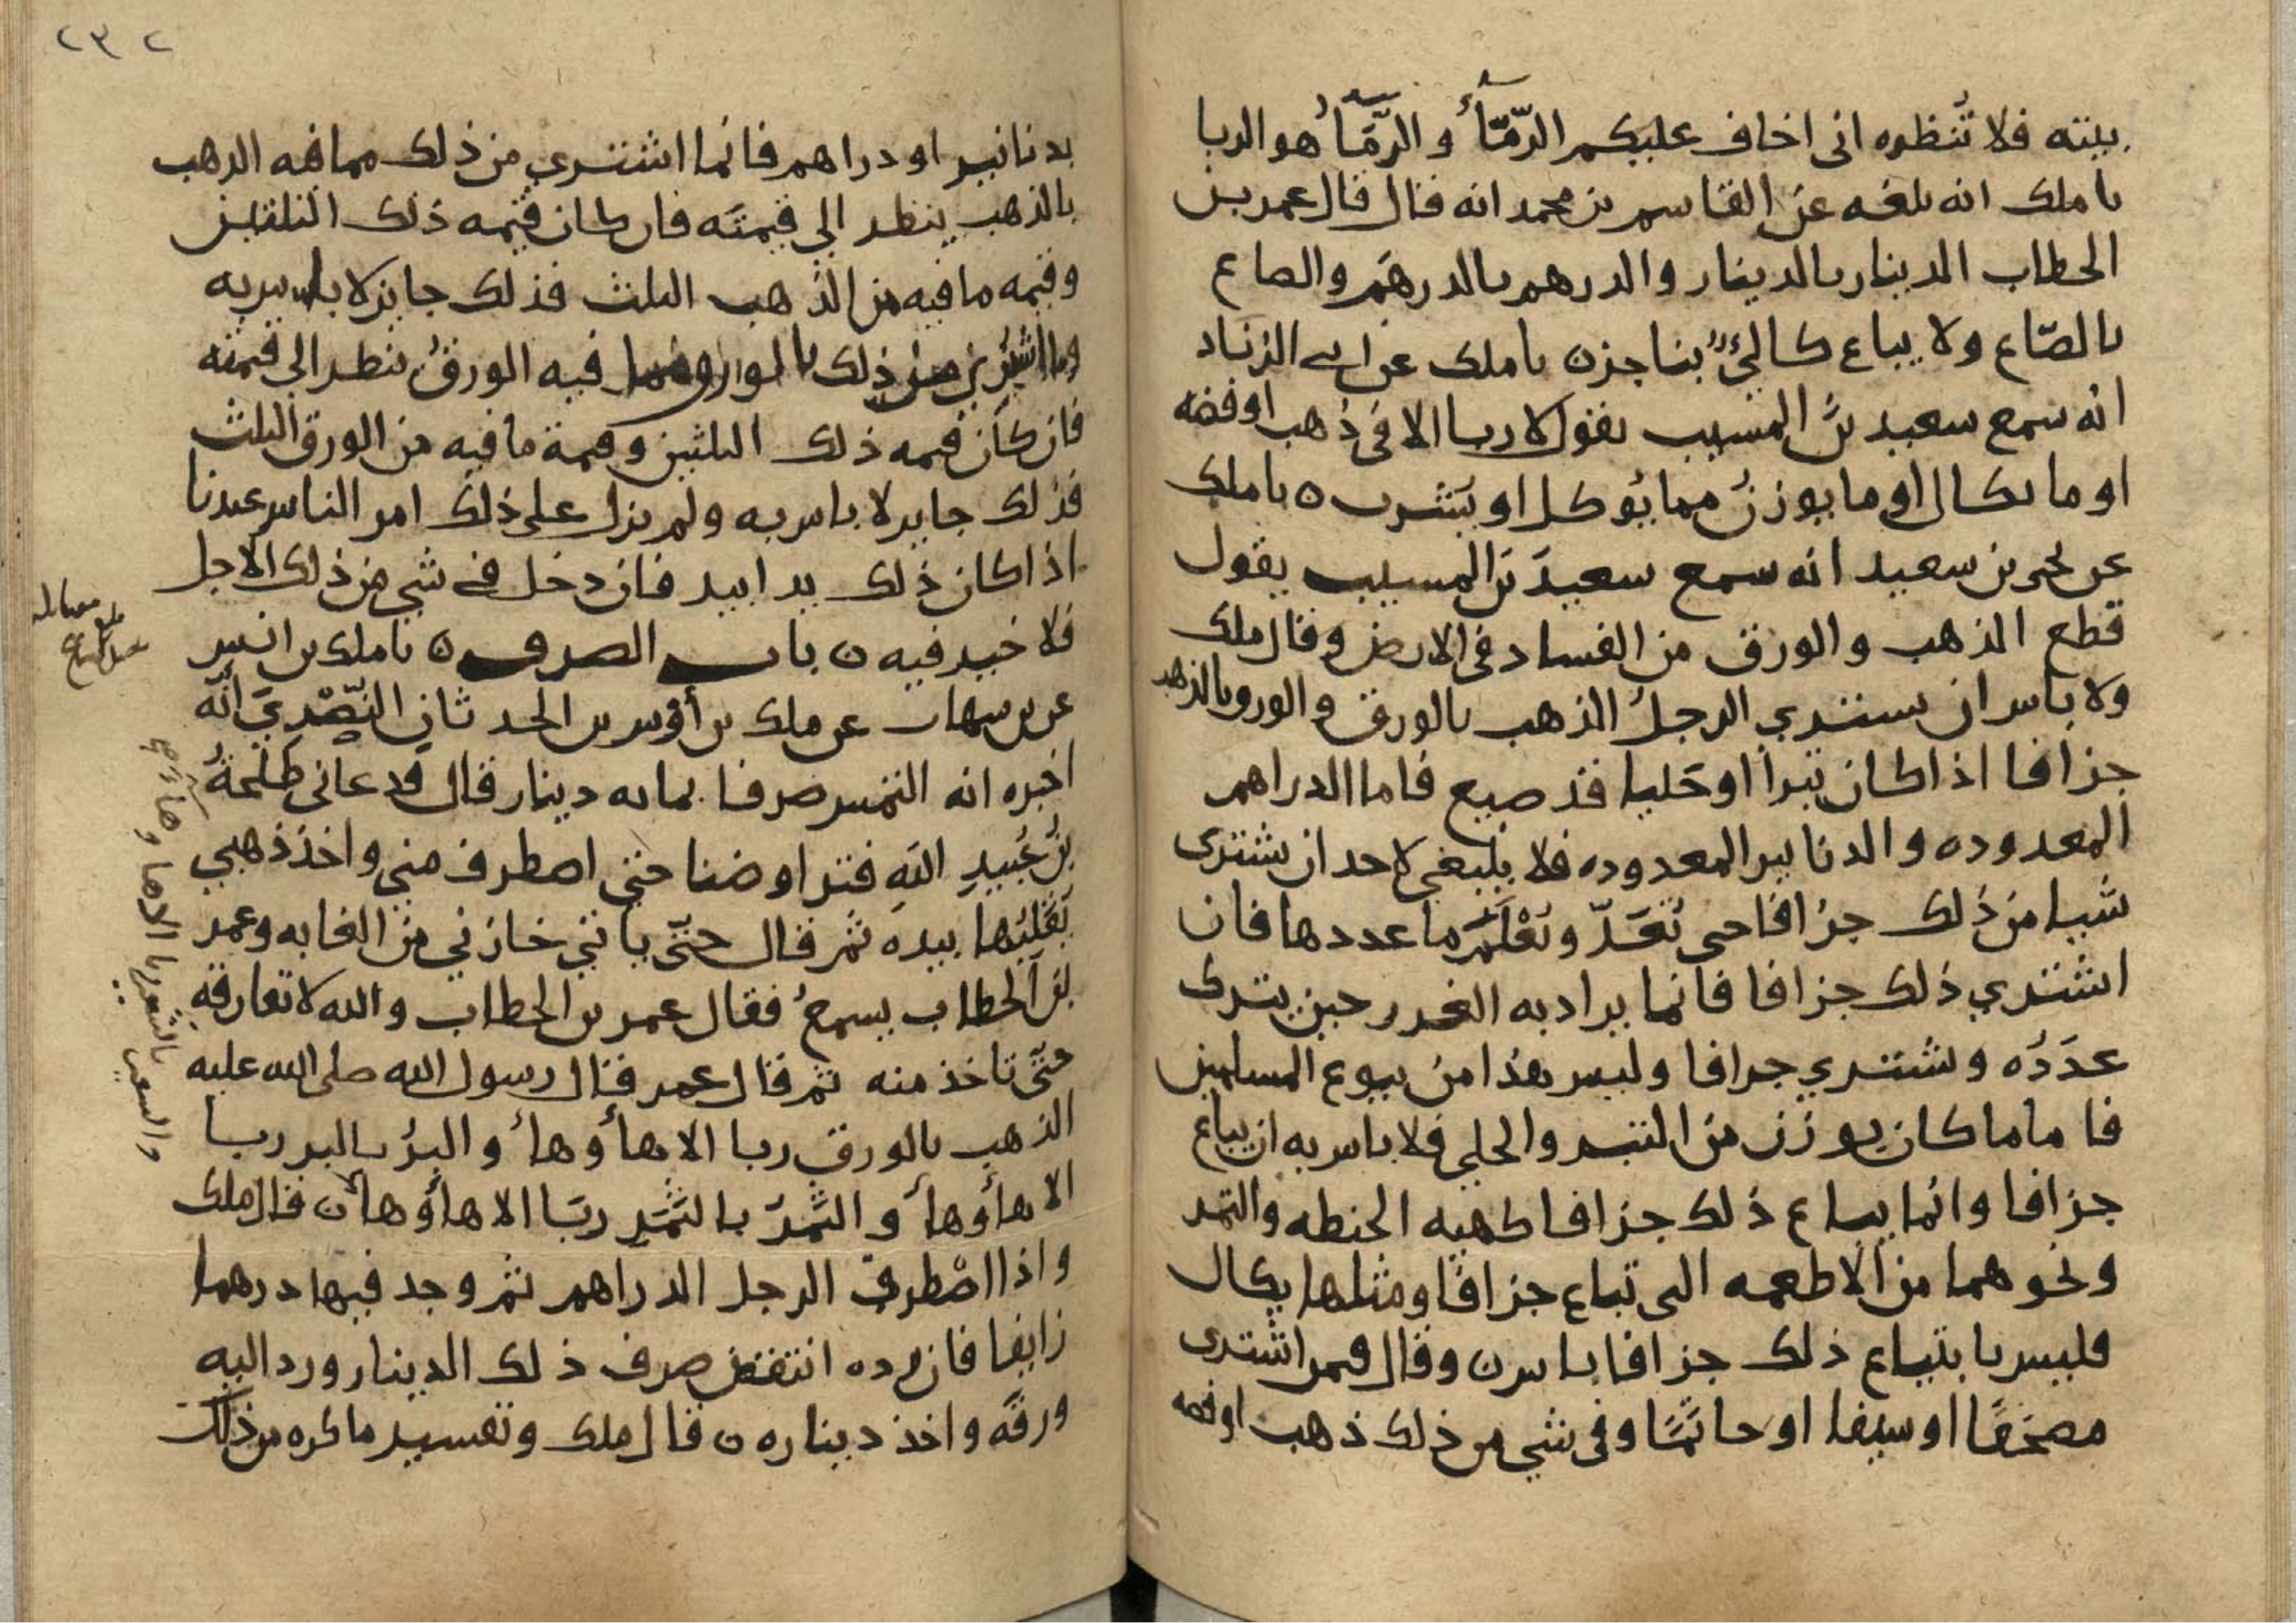 بيته فلا تُنظره انى اخاف عليكم الرّمَآءُ و الرَّمَآءُ هو الربا
نا ملك انه بلغه عن القاسم بن محمد انه قال قال عمر بن
الخطاب الدينار بالدينار والدرهم بالدرهم والصاع
بالصّاع ولا يباع كالئٌ بناجز ن نا ملك عن ابى الزناد
انه سمع سعيد بن المسيب يقول لا ربا الا فى ذهب او فضه
او ما يكال او ما يوزن مما يؤكل او يشرب ن نا ملك
عن يحيى بن سعيد انه سمع سعيدَ بن المسيب يقول
قطع الذهب والورق من الفساد فى الارض وقال ملك
ولا باس ان يشتري الرجلُ الذهب بالورق والورق بالذهب
جزافا اذا كان تبرا او حَليا قد صيغ فاما الدراهم
المعدوده والدنانير المعدوده فلا ينبغي لاحد ان يشترى
شيا من ذلك جزافا حتى تُعَدّ وتُعْلَمَ ما عددها فان
اشتري ذلك جزافا فانما يراد به الغرر حين يترك
عدَدُه ويشتري جزافا وليس هذا من بيوع المسلمين
فاما ما كان يوزن من التبر والحلي فلا باس به ان يباع
جزافا وانما يباع ذلك جزافا كهيه الحنطه والتمر
ونحوهما من الاطعمه التى تباع جزافا ومثلها يكال
فليس بابتياع ذلك جزافا باس ن وقال فيمن اشترى
مصحَفًا او سيفا او خاتَمًا وفى شي من ذلك ذهب او فضه
٢٣٢
بدنانير او دراهم فانما اشتري من ذلك مما فيه الذهب
بالذهب ينظر الي قيمتَه فان كان قيمه ذلك الثلثين
وقيمه ما فيه من الذهب الثلث فذلك جايز لا باس به
وما اشتري من ذلك بالورق مما فيه الورقُ ينظر الي قيمته
فان كان قيمه ذلك الثلثين وقيمة ما فيه من الورق الثلث
فذلك جايز لا باس به ولم يزل على ذلك امر الناس عندنا
اذا كان ذلك يدا بيد فان دخل في شي من ذلك الاجل
فلا خير فيه ن باب الصرف ن نا ملك بن انس
عن بن شهاب عن ملك بن أوس بن الحدثان النّصْرِيّ انّه
اخبره انه التمس صرفا بمائه دينار قال فدعانى طلحةُ
بنُ عُبيدِ الله فتراوضنا حتى اصطرف مني واخذ ذهبي
يُقلبُها بيده ثم قال حتّى ياتني خازني من الغابه وعمر
بن الخطاب يسمعُ فقال عمر بن الخطاب والله لا تفارقه
حتّى تاخذ منه ثم قال عمر قال رسول الله صلى الله عليه
الذهب بالورق ربا الا هأ وهأ والبرُ بالبر ربا
الا هأ وهأ والتَّمرُ بالتَّمَرِ ربَا الا هأ وهأ ن قال ملك
واذا اصْطرف الرجل الدراهم ثم وجد فيها درهما
زايفا فان رده انتقض صرف ذلك الدينار ورد اليه
ورقَه واخذ ديناره ن قال ملك وتفسير ما كره من ذلك
والشعير بالشعير ربا الا ها وهاء صح